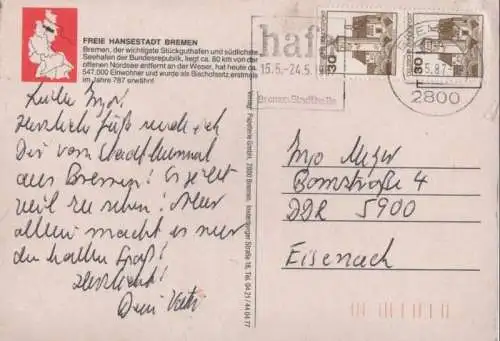 FREIE HANSESTADT BREMEN
Bremen, der wichtigste Stückguthafen und südlichste
Seehafen der Bundesrepublik, liegt ca. 60 km von der
offenen Nordsee entfernt an der Weser, hat heute ca.
547.000 Einwohner und wurde als Bischofssitz erstmals
im Jahre 787 erwähnt.
Lieber Ingo!
Herzliche Grüße sende ich
Dir vom Stadtbummel
aus Bremen! Es gibt
viel zu sehen! Aber
allein macht es nur
den halben Spaß!
Herzlichst!
Dein Vater
Verlag: Papeterie GmbH, 2800 Bremen,
Straße 16, Tel. 04 21 / 44 64 77
hafa
15.5.-24.5.
Bremen Stadthalle
30
30
5.87
2800
Ingo
4
DDR 5900
Eisenach